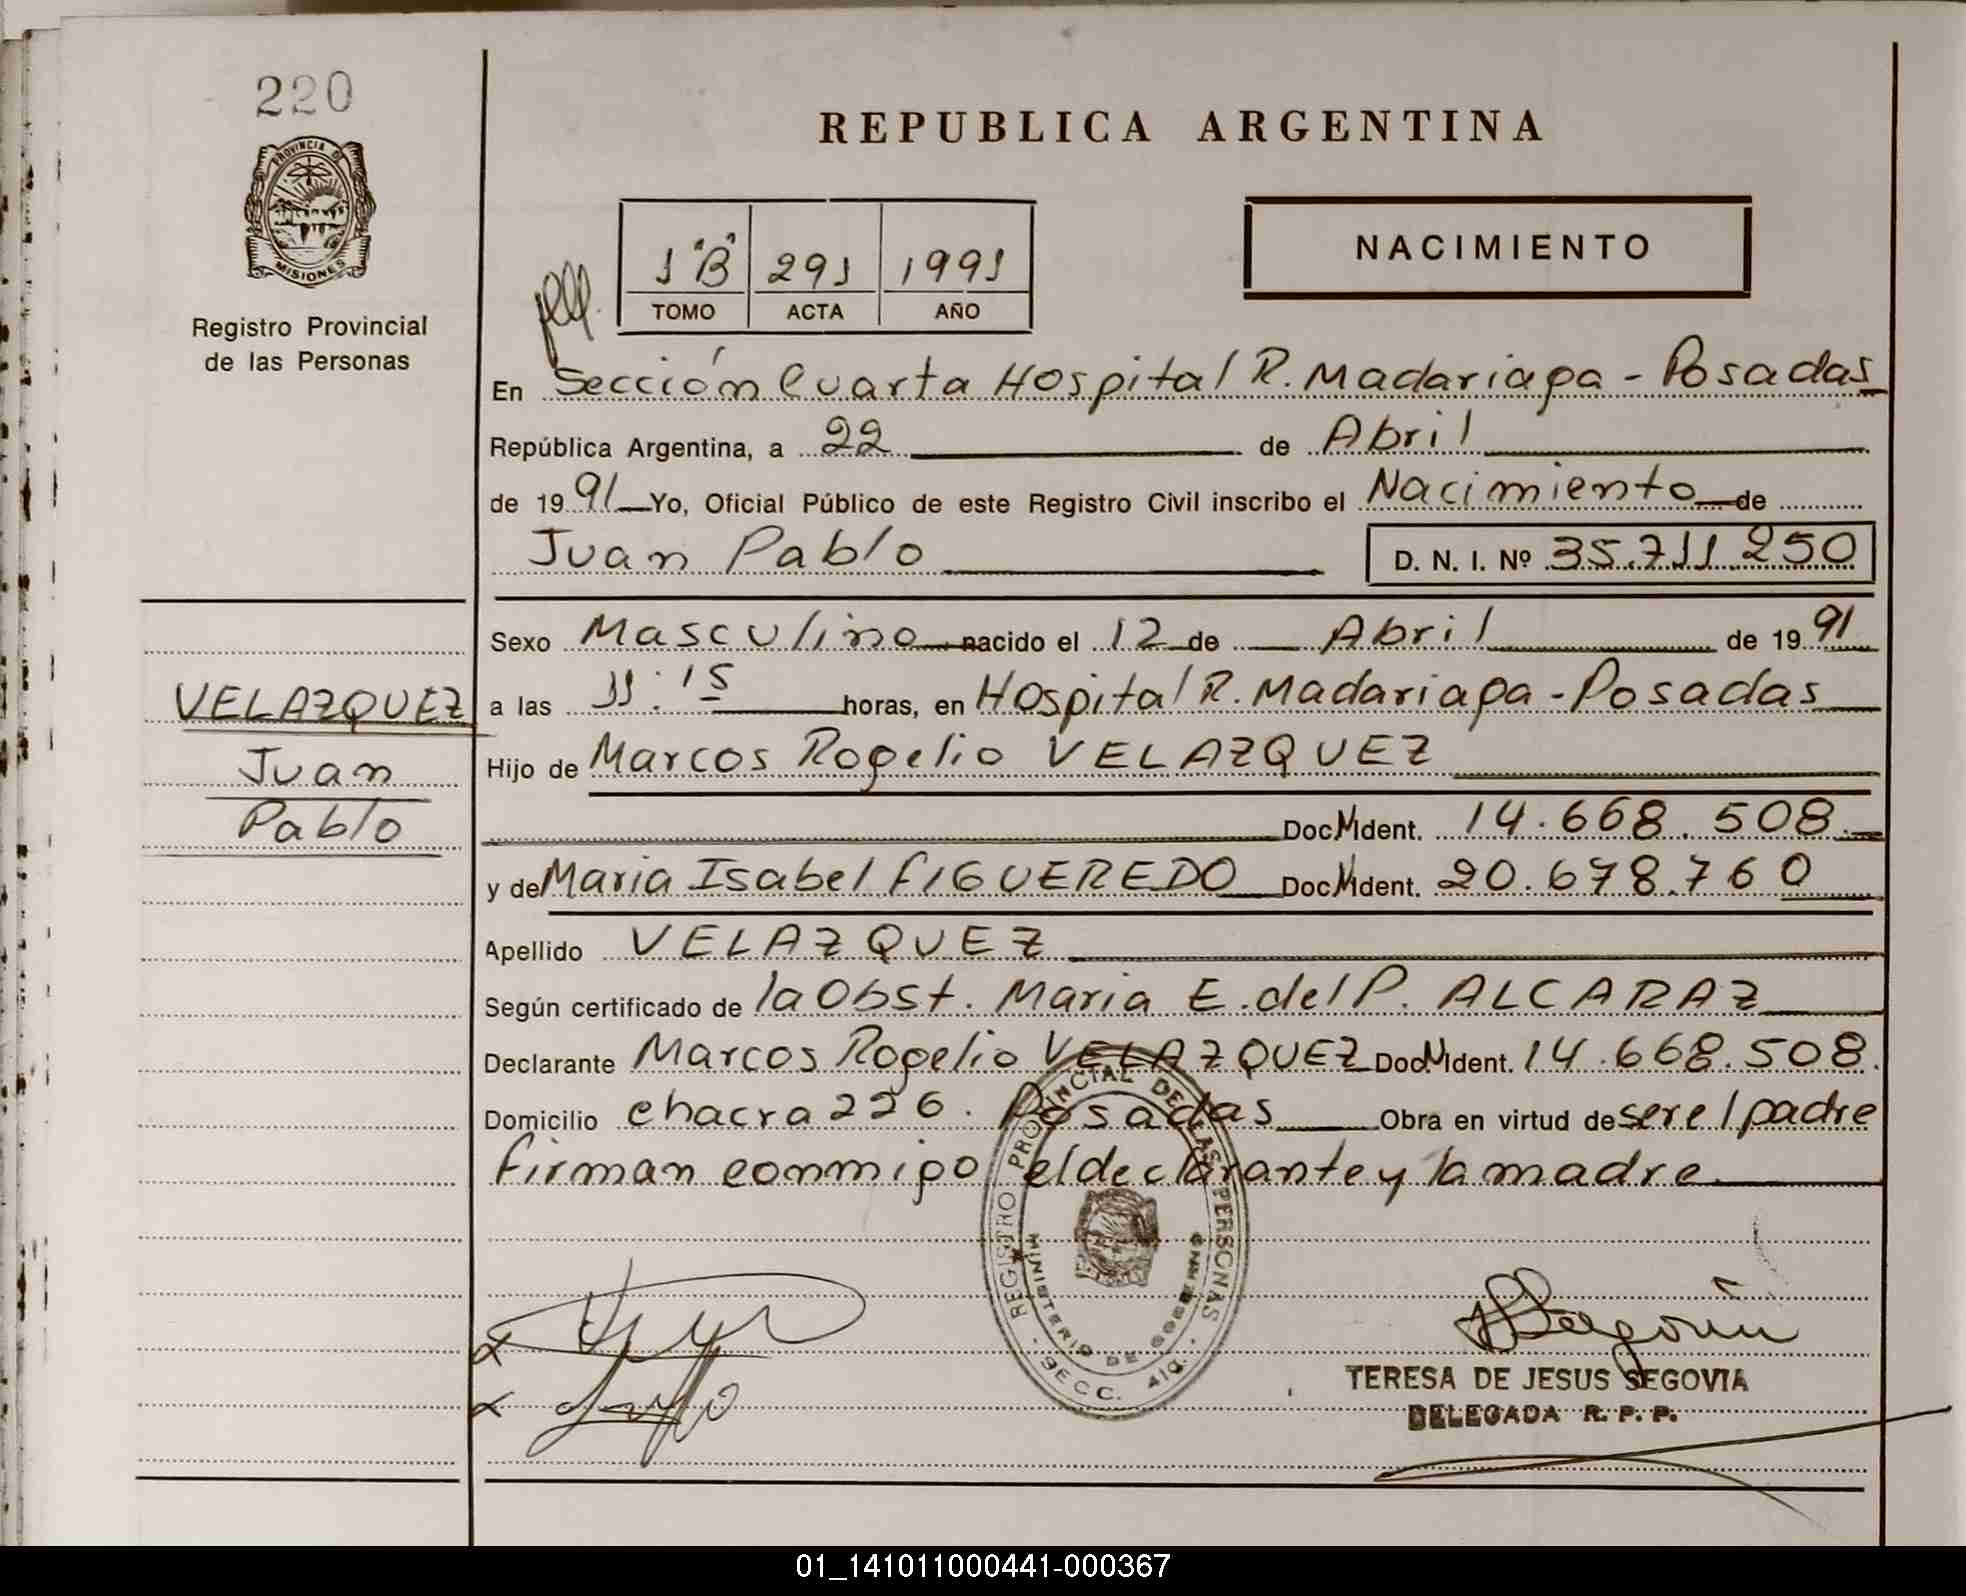 220
PROVINCIA DE
MISIONES
Registro Provincial
de las Personas
REPUBLICA ARGENTINA
1"B" 291 1991
TOMO ACTA AÑO
NACIMIENTO
En Sección Cuarta Hospital R. Madariaga - Posadas
República Argentina, a 22 de Abril
de 1991 Yo, Oficial Público de este Registro Civil inscribo el Nacimiento de
Juan Pablo D. N. I. Nº 35.711.250
Sexo Masculino nacido el 12 de Abril de 1991
VELAZQUEZ
Juan
Pablo
a las 11:15 horas, en Hospital R. Madariaga - Posadas
Hijo de Marcos Rogelio VELAZQUEZ
Doc. N Ident. 14.668.508
y de Maria Isabel FIGUEREDO Doc. N Ident. 20.678.760
Apellido VELAZQUEZ
Según certificado de la Obst. Maria E. del P. ALCARAZ
Declarante Marcos Rogelio VELAZQUEZ Doc. N Ident. 14.668.508.
Domicilio chacra 226. Posadas Obra en virtud de ser el padre
firman conmigo el declarante y la madre
REGISTRO PROVINCIAL DE LAS PERSONAS
MINISTERIO DE GOBIERNO
SECC. 4ta.
TERESA DE JESUS SEGOVIA
DELEGADA R. P. P.
01_141011000441-000367